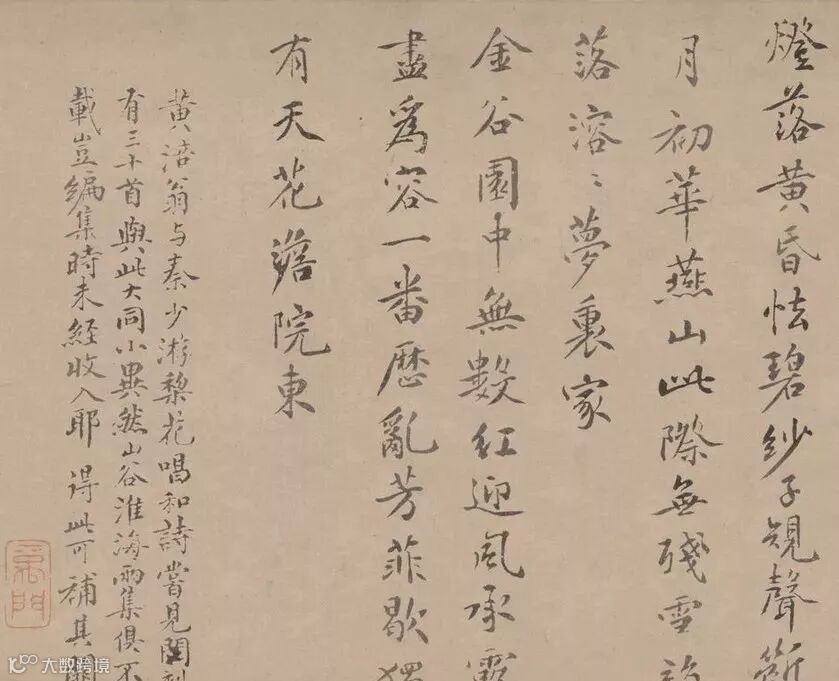 燈落黃昏怯碧紗子規聲斷
月初華燕山此際無殘雪
落溶〻夢裏家
金谷園中無數紅迎風承露
盡為容一番歷亂芳菲歇
有天花澹院東
黃涪翁与秦少游棃花唱和詩嘗見閣
有三十首與此大同小異然山谷淮海兩集俱不
載豈編集時未經收入耶得此可補其闕
大数跨境